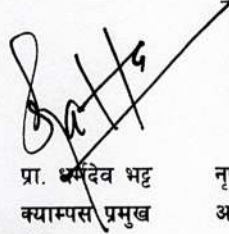 प्रा. धर्मदेव भट्ट नृ
क्याम्पस प्रमुख अ